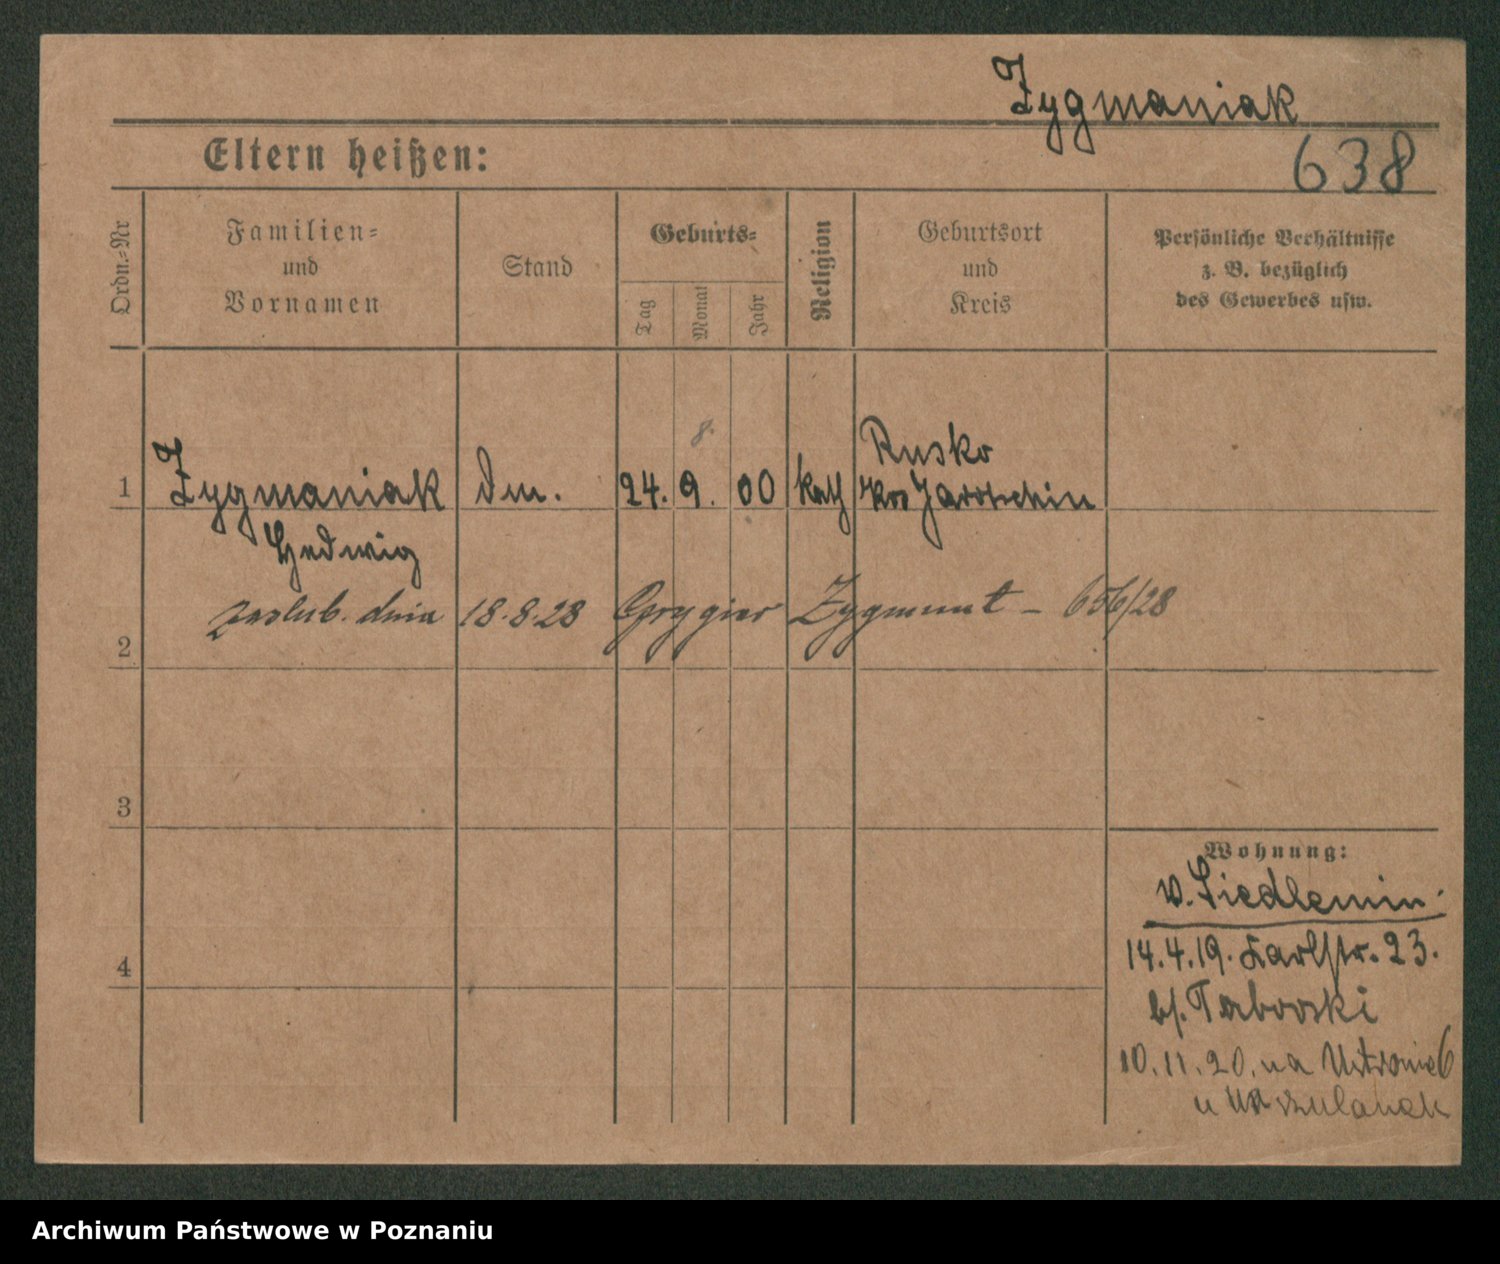 Zygmaniak
638
Eltern heißen:
Ordn.-Nr
Familien-
und
Vornamen
Stand
Geburts-
Tag
Monat
Jahr
Religion
Geburtsort
und
Kreis
Persönliche Verhältnisse
z. B. bezüglich
des Gewerbes usw.
8.
Rusko
1 Zygmaniak Dm. 24. 9. 00 kath Krs Jarotschin
Hedwig
zaslub. dnia 18.8.28 Grygier Zygmunt - 656/28
2
3
4
Wohnung:
v. Siedlemin.
14.4.19. Karlstr. 23.
bs. Taborski
10.11.20. na Ustronie 6
u
Archiwum Państwowe w Poznaniu